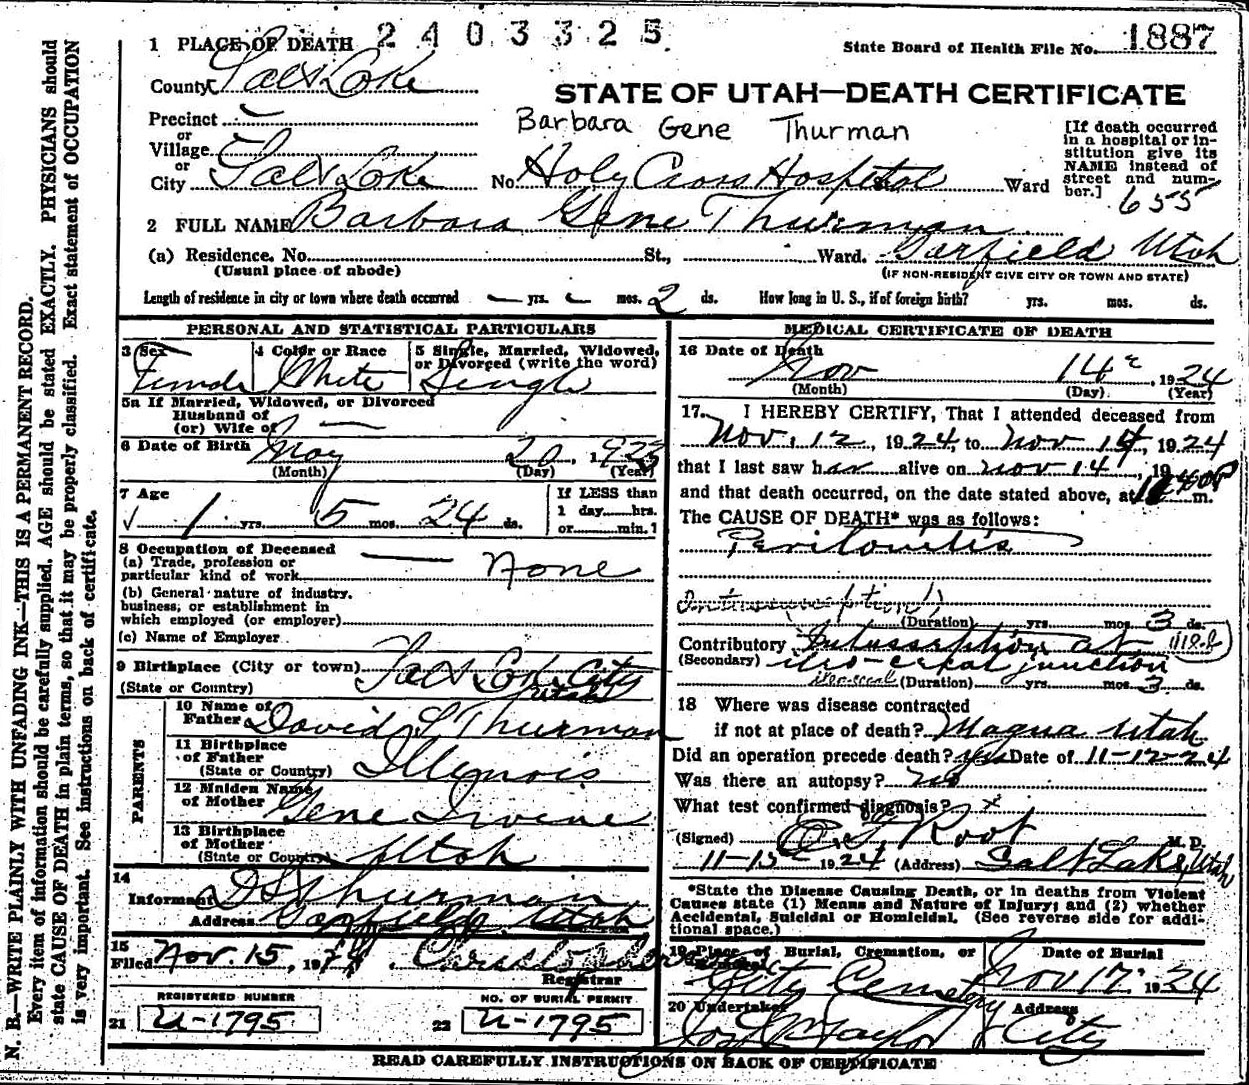 2403325
1 PLACE OF DEATH
State Board of Health File No. 1887
County Salt Lake
STATE OF UTAH—DEATH CERTIFICATE
Precinct
Barbara Gene Thurman
or
Village
or
City Salt Lake No. Holy Cross Hospital Ward
[If death occurred in a hospital or institution give its NAME instead of street and number.]
655
2 FULL NAME Barbara Gene Thurman
(a) Residence. No. St., Ward. Garfield Utah
(Usual place of abode) (IF NON-RESIDENT GIVE CITY OR TOWN AND STATE)
Length of residence in city or town where death occurred — yrs. — mos. 2 ds. How long in U. S., if of foreign birth? yrs. mos. ds.
PERSONAL AND STATISTICAL PARTICULARS
3 Sex Female
4 Color or Race White
5 Single, Married, Widowed, or Divorced (write the word) Single
5a If Married, Widowed, or Divorced
Husband of
(or) Wife of —
6 Date of Birth May 20, 1923
(Month) (Day) (Year)
7 Age
1 yrs. 5 mos. 24 ds.
If LESS than
1 day hrs.
or min.
8 Occupation of Deceased
(a) Trade, profession or
particular kind of work None
(b) General nature of industry,
business, or establishment in
which employed (or employer)
(c) Name of Employer
9 Birthplace (City or town) Salt Lake City
(State or Country) Utah
PARENTS
10 Name of
Father David S Thurman
11 Birthplace
of Father
(State or Country) Illinois
12 Maiden Name
of Mother Gene Irvine
13 Birthplace
of Mother
(State or Country) Utah
14
Informant D S Thurman
Address Garfield, Utah
15
Filed Nov. 15, 1924
Registrar
REGISTERED NUMBER
21 U-1795
NO. OF BURIAL PERMIT
22 U-1795
MEDICAL CERTIFICATE OF DEATH
16 Date of Death
Nov 14, 1924
(Month) (Day) (Year)
17. I HEREBY CERTIFY, That I attended deceased from
Nov. 12, 1924, to Nov 14, 1924
that I last saw her alive on Nov 14, 19
and that death occurred, on the date stated above, at m.
The CAUSE OF DEATH* was as follows:
Peritonitis
(Duration) yrs. mos. 3 ds.
Contributory Intussception at
(Secondary) ileo-cecal junction
(Duration) yrs. mos. 3 ds.
18 Where was disease contracted
if not at place of death? Magna Utah
Did an operation precede death? yes Date of 11-12-24
Was there an autopsy? no
What test confirmed diagnosis? x
(Signed) Root M. D.
1924 (Address) Salt Lake, Utah
*State the Disease Causing Death, or in deaths from Violent
Causes state (1) Means and Nature of Injury; and (2) whether
Accidental, Suicidal or Homicidal. (See reverse side for addi-
tional space.)
19 Place of Burial, Cremation, or
City Cemetery
Date of Burial
Nov 17 1924
20 Undertaker
Address
City
READ CAREFULLY INSTRUCTIONS ON BACK OF CERTIFICATE
N. B.—WRITE PLAINLY WITH UNFADING INK—THIS IS A PERMANENT RECORD.
Every item of information should be carefully supplied. AGE should be stated EXACTLY. PHYSICIANS should
state CAUSE OF DEATH in plain terms, so that it may be properly classified. Exact statement of OCCUPATION
is very important. See instructions on back of certificate.